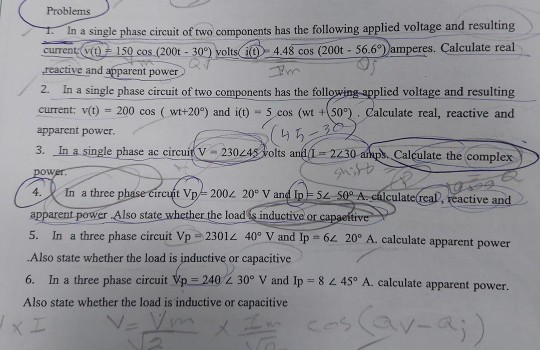 Problems
1. In a single phase circuit of two components has the following applied voltage and resulting
current: v(t) = 150 cos (200t - 30°) volts i(t) = 4.48 cos (200t - 56.6°) amperes. Calculate real
,reactive and apparent power
2. In a single phase circuit of two components has the following applied voltage and resulting
current: v(t) = 200 cos ( wt+20°) and i(t) = 5 cos (wt + 50°) . Calculate real, reactive and
apparent power.
(45-30)
3. In a single phase ac circuit V = 230∠45 volts and I = 2∠30 amps. Calculate the complex
power.
4. In a three phase circuit Vp = 200∠ 20° V and Ip = 5∠ 50° A. calculate real , reactive and
apparent power .Also state whether the load is inductive or capacitive
5. In a three phase circuit Vp = 2301∠ 40° V and Ip = 6∠ 20° A. calculate apparent power
.Also state whether the load is inductive or capacitive
6. In a three phase circuit Vp = 240 ∠ 30° V and Ip = 8 ∠ 45° A. calculate apparent power.
Also state whether the load is inductive or capacitive
V x I V = Vm/√2 x Im/√2 cos (θv-θi)